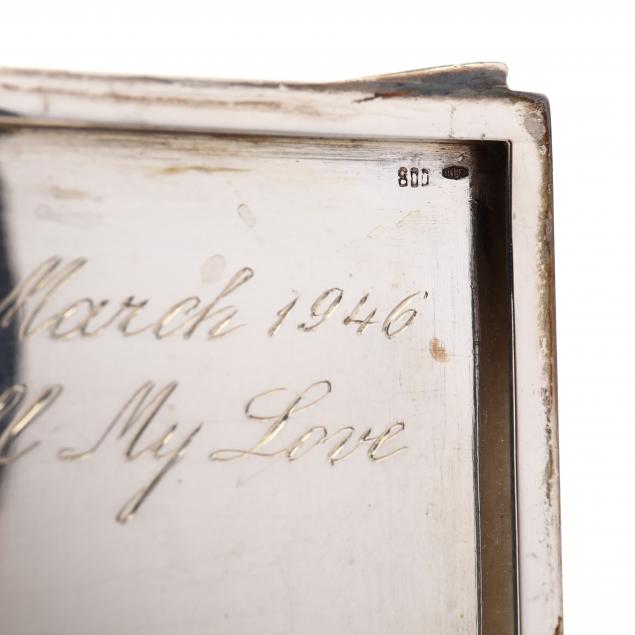 800
March 1946
ll My Love